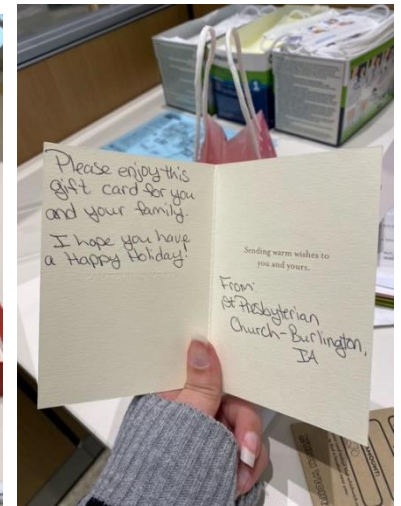 Please enjoy this
gift card for you
and your family.
I hope you have
a Happy Holiday!
Sending warm wishes to
you and yours,
From:
1st Presbyterian
Church-Burlington,
IA